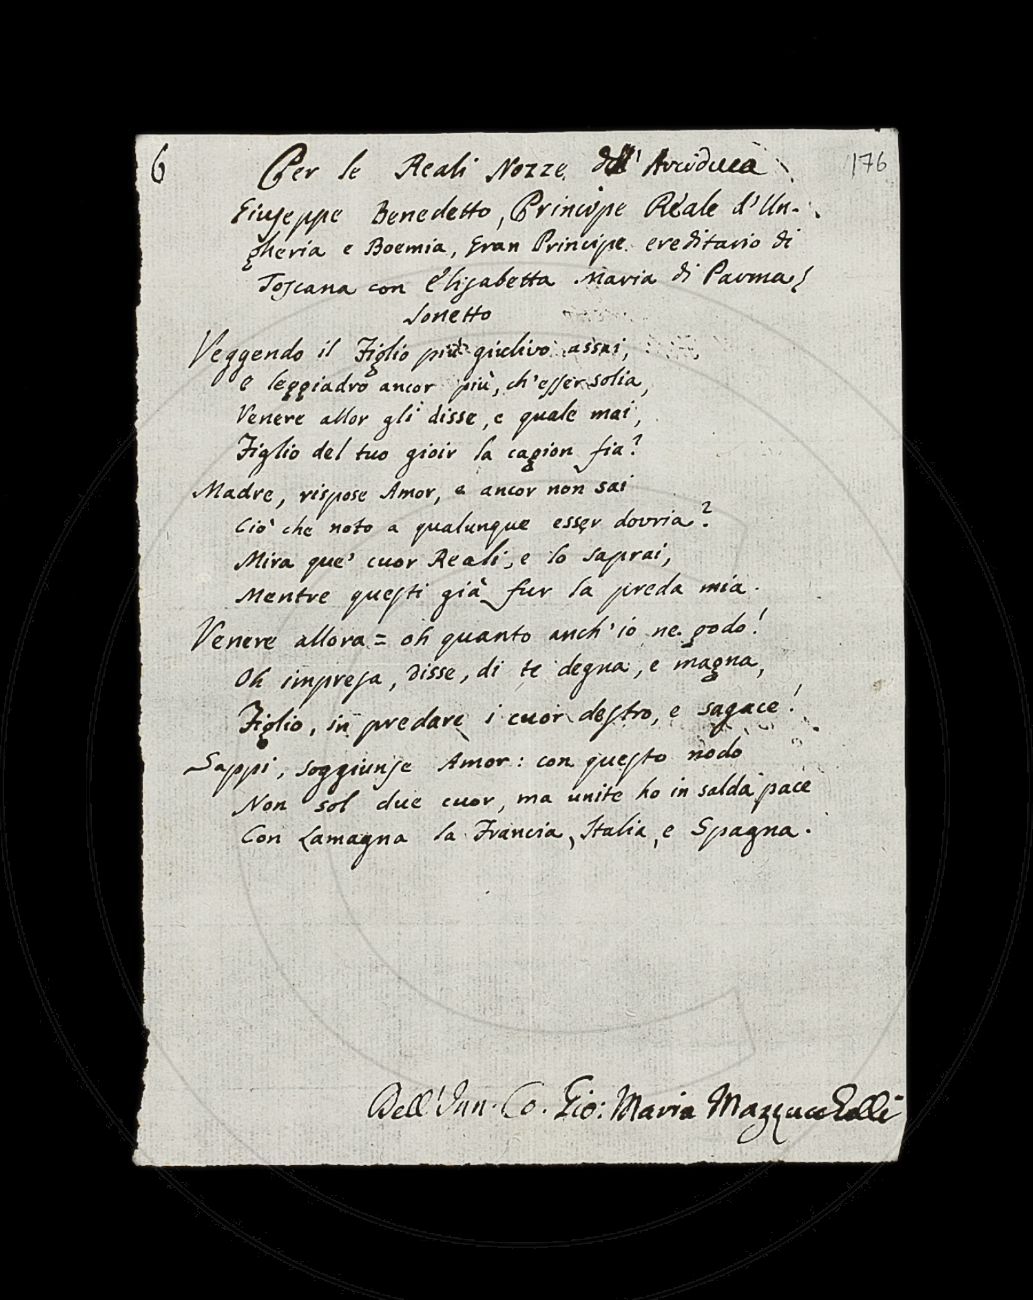 6 176
Per le Reali Nozze dell'Arciduca
Giuseppe Benedetto, Principe Reale d'Un-
gheria e Boemia, Gran Principe ereditario di
Toscana con Elisabetta Maria di Parma
Sonetto
Veggendo il Figlio più giulivo assai,
e leggiadro ancor più, ch'esser solia,
Venere allor gli disse, e quale mai,
Figlio del tuo gioir la cagion fia?
Madre, rispose Amor, e ancor non sai
Ciò che noto a qualunque esser dovria?
Mira que' cuor Reali, e lo saprai,
Mentre questi già fur la preda mia.
Venere allora = oh quanto anch'io ne godo!
Oh impresa, disse, di te degna, e magna,
Figlio, in predare i cuor destro, e sagace!
Sappi, soggiunse Amor: con questo nodo
Non sol due cuor, ma unite ho in salda pace
Con Lamagna la Francia, Italia, e Spagna.
Dell' Co. Gio: Maria Mazzuchelli